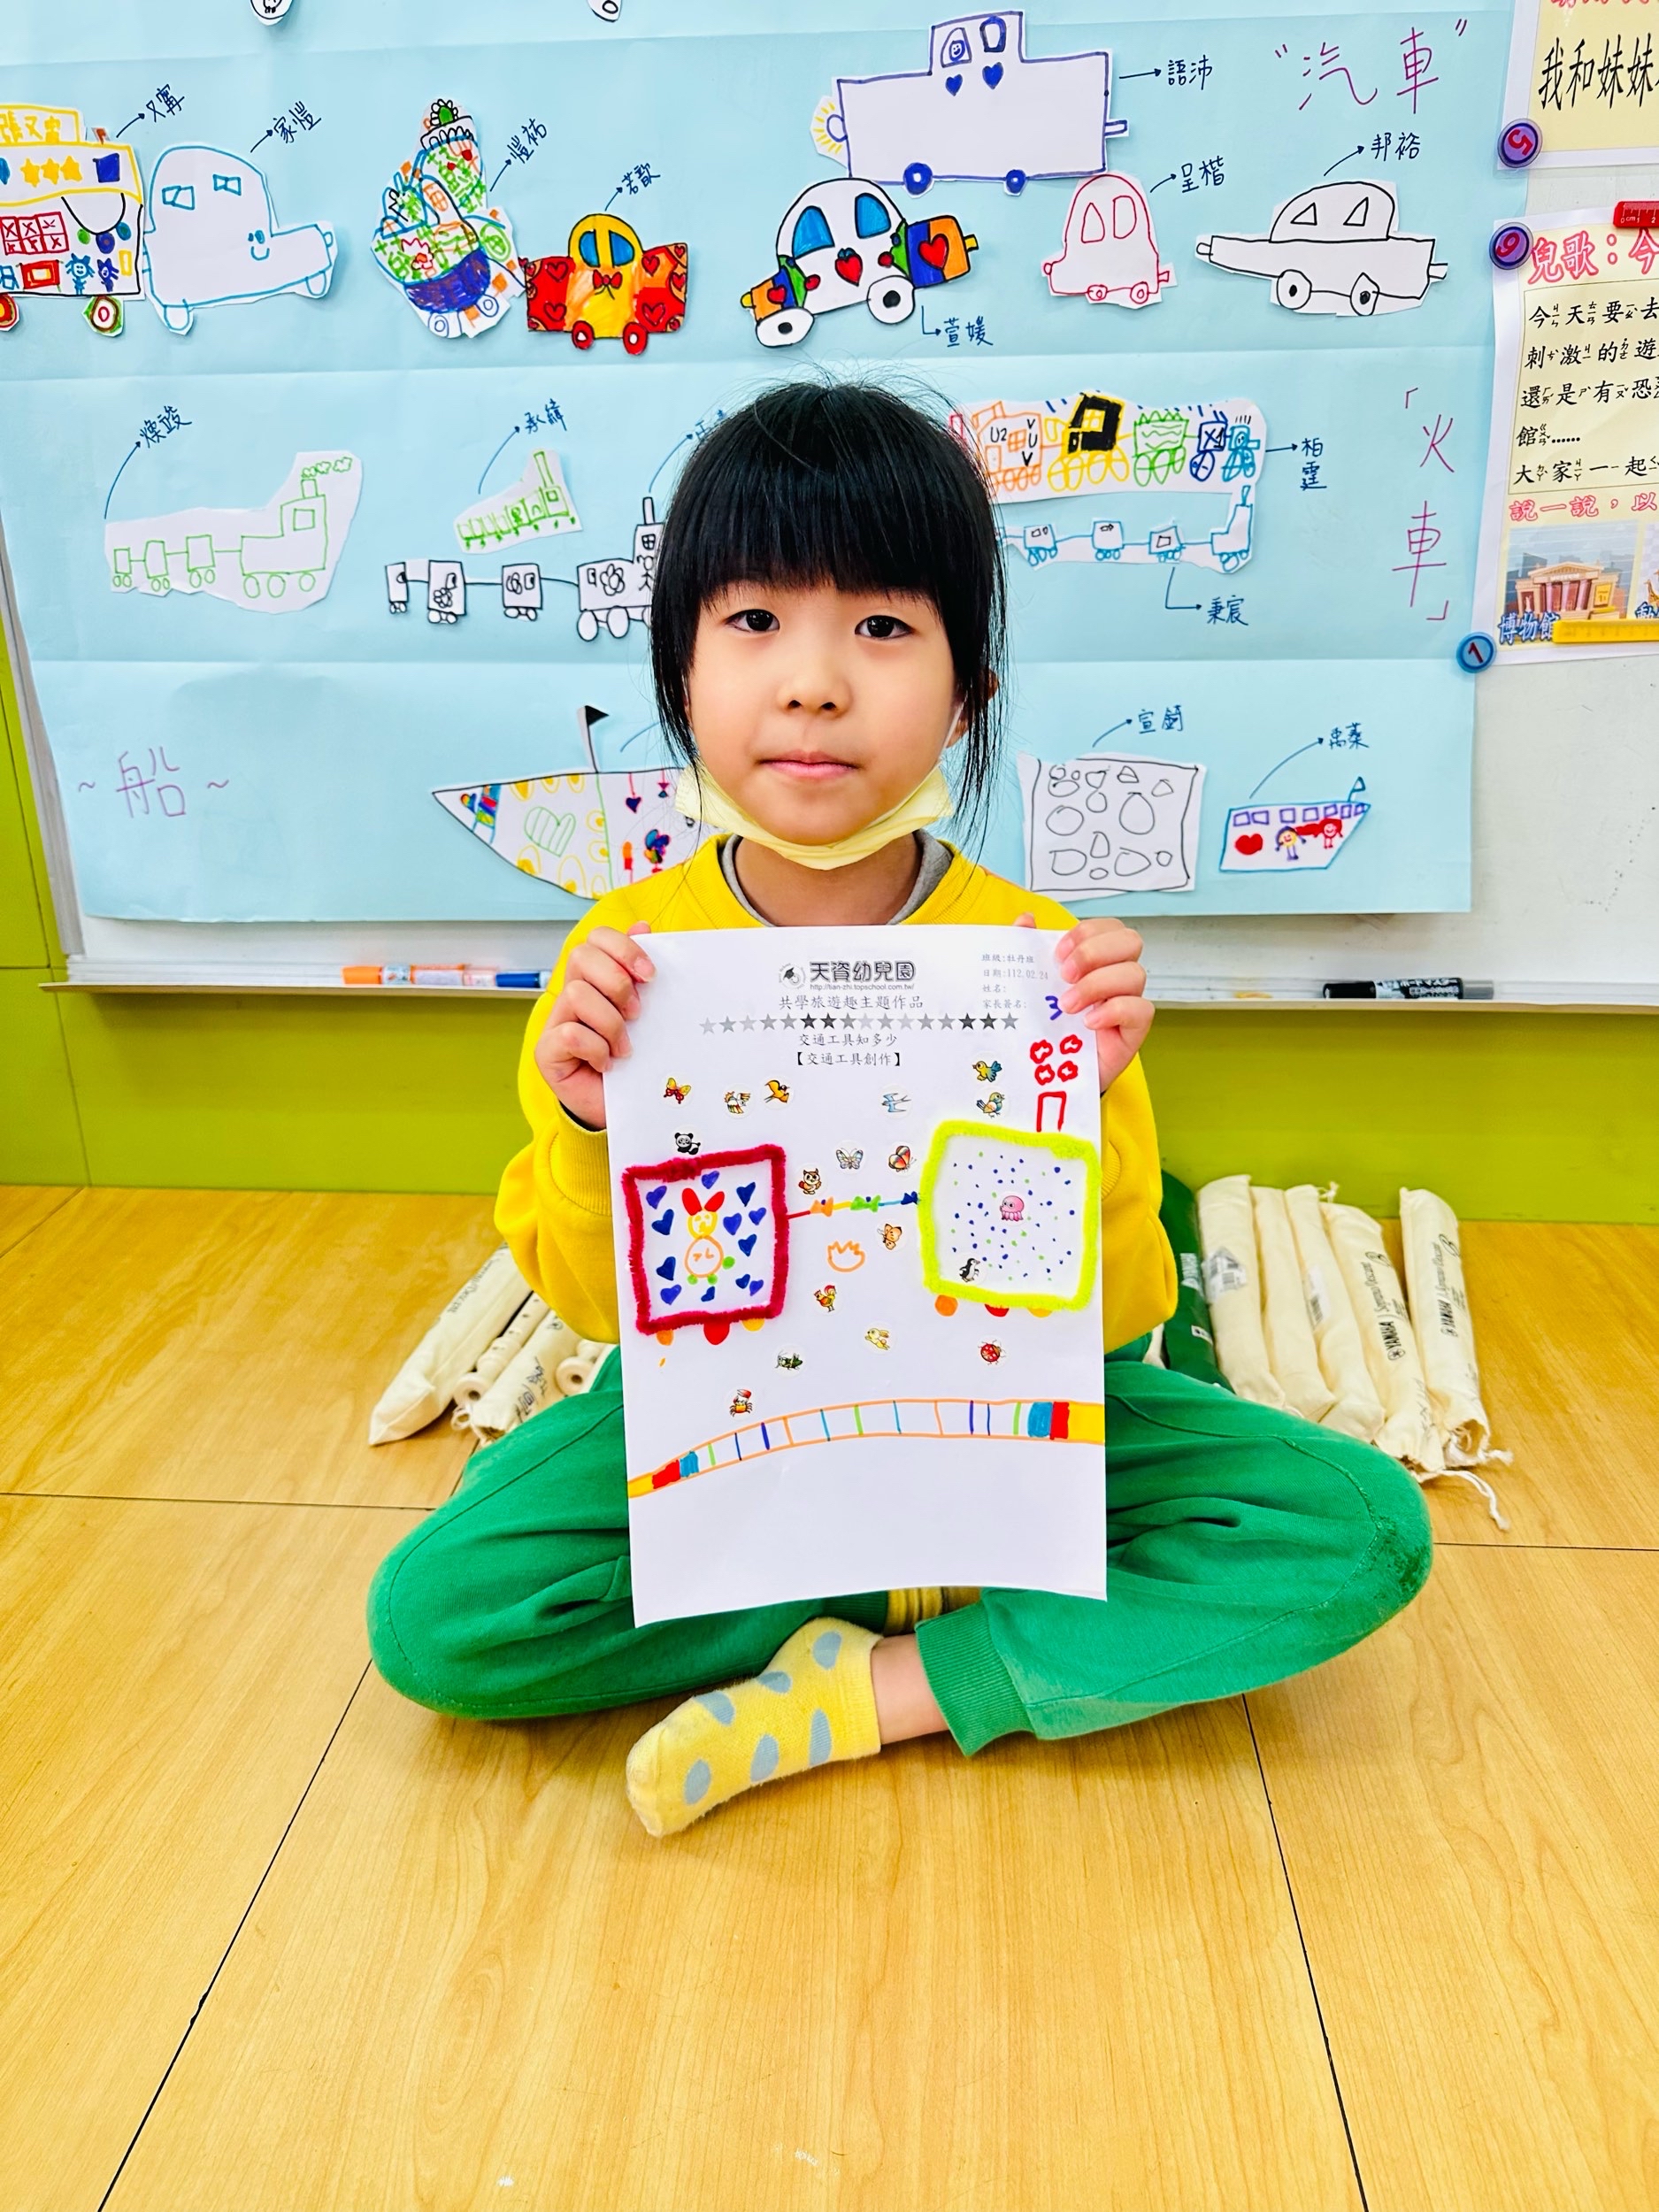 "汽車"
語沛
又寗
張又寗
家愷
愷祐
若歆
呈楷
邦裕
萱媛
我和妹妹
5
6
兒歌：今
今天要去
刺激的遊
還是有恐
館……
大家一起
說一說，以
博物館
1
「火車」
承緯
柏霆
U2
秉宸
~船~
宣錡
天資幼兒園
http://tian-zhi.topschool.com.tw/
共學旅遊趣主題作品
班級:牡丹班
日期:112.02.24
姓名:
家長簽名:
3
交通工具知多少
【交通工具創作】
YAMAHA
YAMAHA